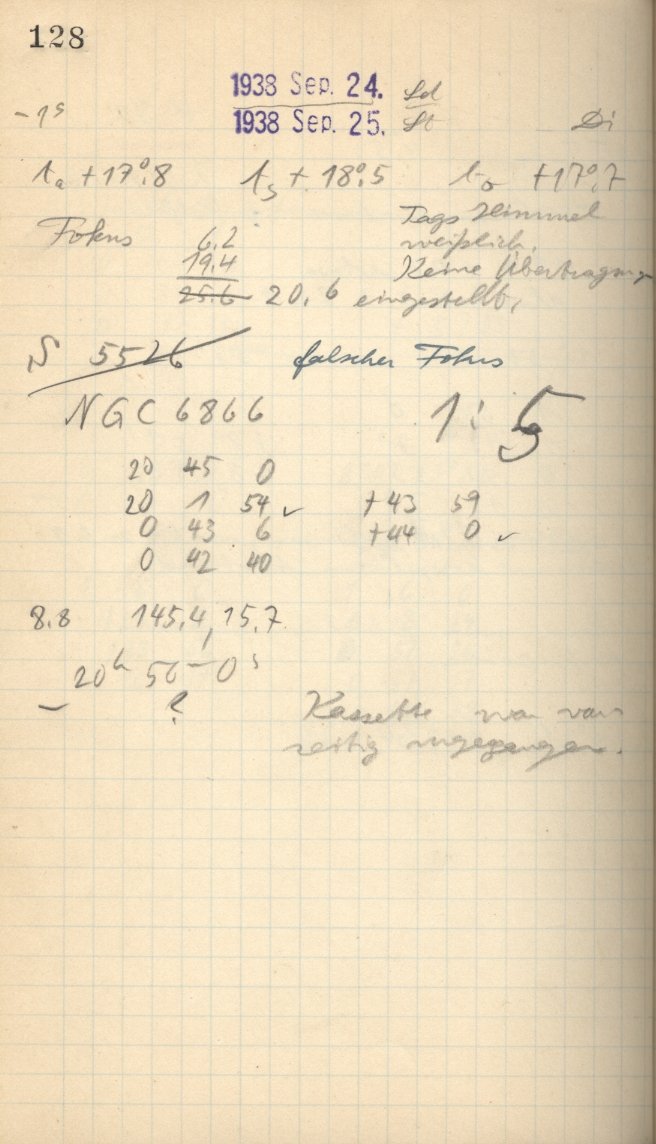 128
1938 Sep. 24. Sd
-1ˢ 1938 Sep. 25. St Di
tₐ +17°.8 tₛ + 18°.5 t₀ +17°.7
Tags Himmel
Fokus 6.2 weißlich.
19.4 Keine Übertragung
25.6 20.6 eingestellt.
S 5526 falscher Fokus
NGC 6866 1:5
20 45 0
20 1 54 ✓ +43 59
0 43 6 +44 0 ✓
0 42 40
8.8 145.4, 15.7
20ʰ 50ᵐ 0ˢ
– ?
Kassette war vor-
zeitig